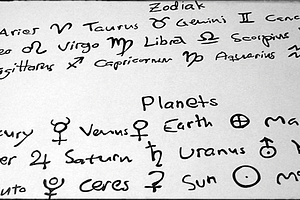 Zodiak
Aries ♈ Taurus ♉ Gemini ♊ Canc
eo ♌ Virgo ♍ Libra ♎ Scorpius
agittarius ♐ Capricornus ♑ Aquarius ♒
Planets
cury ☿ Venus ♀ Earth ⊕ Ma
er ♃ Saturn ♄ Uranus ⛢
uto ⯓ Ceres ⚳ Sun ☉ Mo